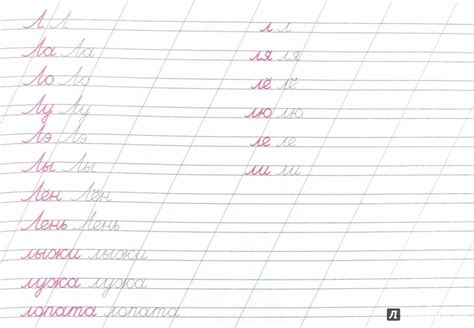 Л Л л л
Ла Ла ля ля
Ло Ло лё лё
Лу Лу лю лю
Лэ Лэ ле ле
Лы Лы ли ли
Лён Лён
Лень Лень
лыжи лыжи
лужа лужа
лопата лопата